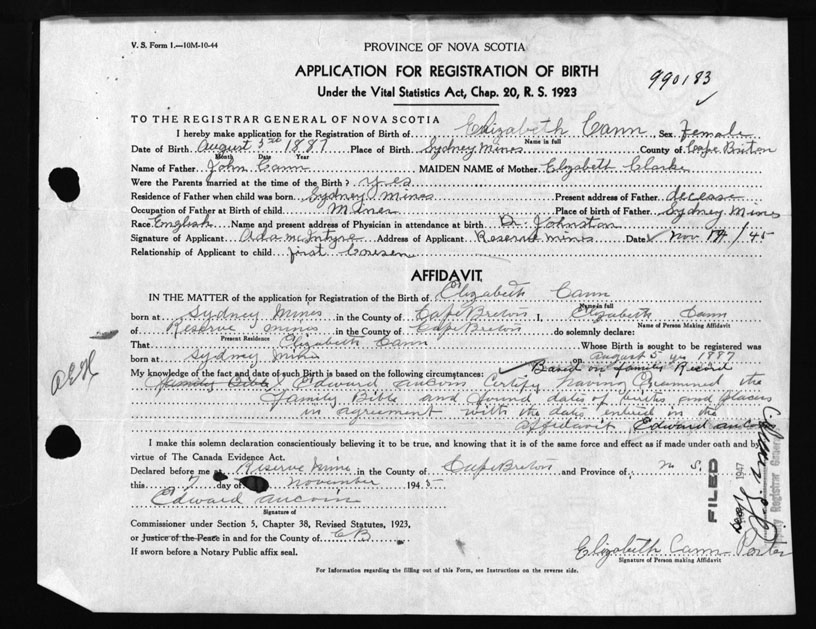 V. S. Form 1.—10M-10-44
PROVINCE OF NOVA SCOTIA
APPLICATION FOR REGISTRATION OF BIRTH
990183
Under the Vital Statistics Act, Chap. 20, R. S. 1923
TO THE REGISTRAR GENERAL OF NOVA SCOTIA
I hereby make application for the Registration of Birth of Elizabeth Cann Sex Female
Name in full
Date of Birth August 5 1887 Place of Birth Sydney Mines County of Cape Breton
Month Date Year
Name of Father John Cann MAIDEN NAME of Mother Elizabeth Clarke
Were the Parents married at the time of the Birth? yes
Residence of Father when child was born Sydney Mines Present address of Father decease
Occupation of Father at Birth of child Miner Place of birth of Father Sydney Mines
Race English Name and present address of Physician in attendance at birth Dr. Johnston
Signature of Applicant Ada McIntyre Address of Applicant Reserve Mines Date Nov 14/45
Relationship of Applicant to child first Cousen
AFFIDAVIT
IN THE MATTER of the application for Registration of the Birth of Elizabeth Cann
Name in full
born at Sydney Mines in the County of Cape Breton I, Elizabeth Cann
Name of Person Making Affidavit
of Reserve Mines in the County of Cape Breton do solemnly declare:
Present Residence
That Elizabeth Cann Whose Birth is sought to be registered was
born at Sydney Mines on August 5 1887
My knowledge of the fact and date of such Birth is based on the following circumstances: Based on family Record
family Bible I Edward Aucoin Certify having Examined the
family Bible and found dates of births and places
in agreement with the dates entered in the
affidavit Edward Aucoin
I make this solemn declaration conscientiously believing it to be true, and knowing that it is of the same force and effect as if made under oath and by
virtue of The Canada Evidence Act.
Declared before me at Reserve Mine in the County of Cape Breton and Province of N S.
this 7 day of November 1945
Edward Aucoin
Signature of
Commissioner under Section 5, Chapter 38, Revised Statutes, 1923,
or Justice of the Peace in and for the County of CB
If sworn before a Notary Public affix seal.
Elizabeth Cann Porter
Signature of Person making Affidavit
For Information regarding the filling out of this Form, see Instructions on the reverse side.
FILED
1947
Deputy Registrar General